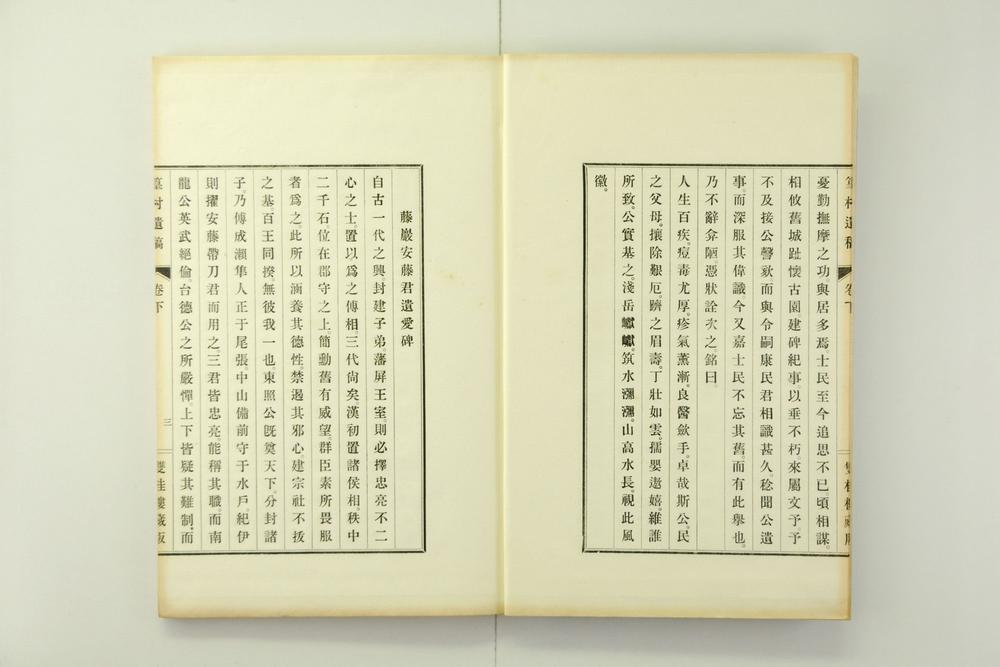 憂勤撫摩之功。與居多焉。士民至今追思不已。頃相謀。
相攸舊城趾懷古園建碑紀事。以垂不朽。來屬文予。予
不及接公謦欬而與令嗣康民君相識甚久。稔聞公遺
事。而深服其偉識。今又嘉士民不忘其舊。而有此擧也。
乃不辭弇陋。憑狀詮次之。銘曰。
人生百疾。痘毒尤厚。疹氣薰漸。良醫歛手。卓哉斯公。民
之父母。攘除艱厄。躋之眉壽。丁壯如雲。孺嬰遨嬉。維誰
所致。公實基之。淺岳巘巘。筑水瀰瀰。山高水長。視此風
徽。
卷下
藤巖安藤君遺愛碑
自古一代之興。封建子弟藩屏王室則必擇忠亮不二
心之士。置以爲之傅相。三代尙矣。漢初置諸侯相。秩中
二千石。位在郡守之上。簡勳舊有威望。群臣素所畏服
者爲之。此所以涵養其德性。禁遏其邪心。建宗社不拔
之基。百王同揆無彼我一也。東照公旣奠天下。分封諸
子。乃傅成瀨隼人正于尾張。中山備前守于水戶。紀伊
則擢安藤帶刀君而用之。三君皆忠亮。能稱其職。而南
龍公英武絕倫。台德公之所嚴憚。上下皆疑其難制。而
篁村遺稿 卷下 三 雙桂樓藏版